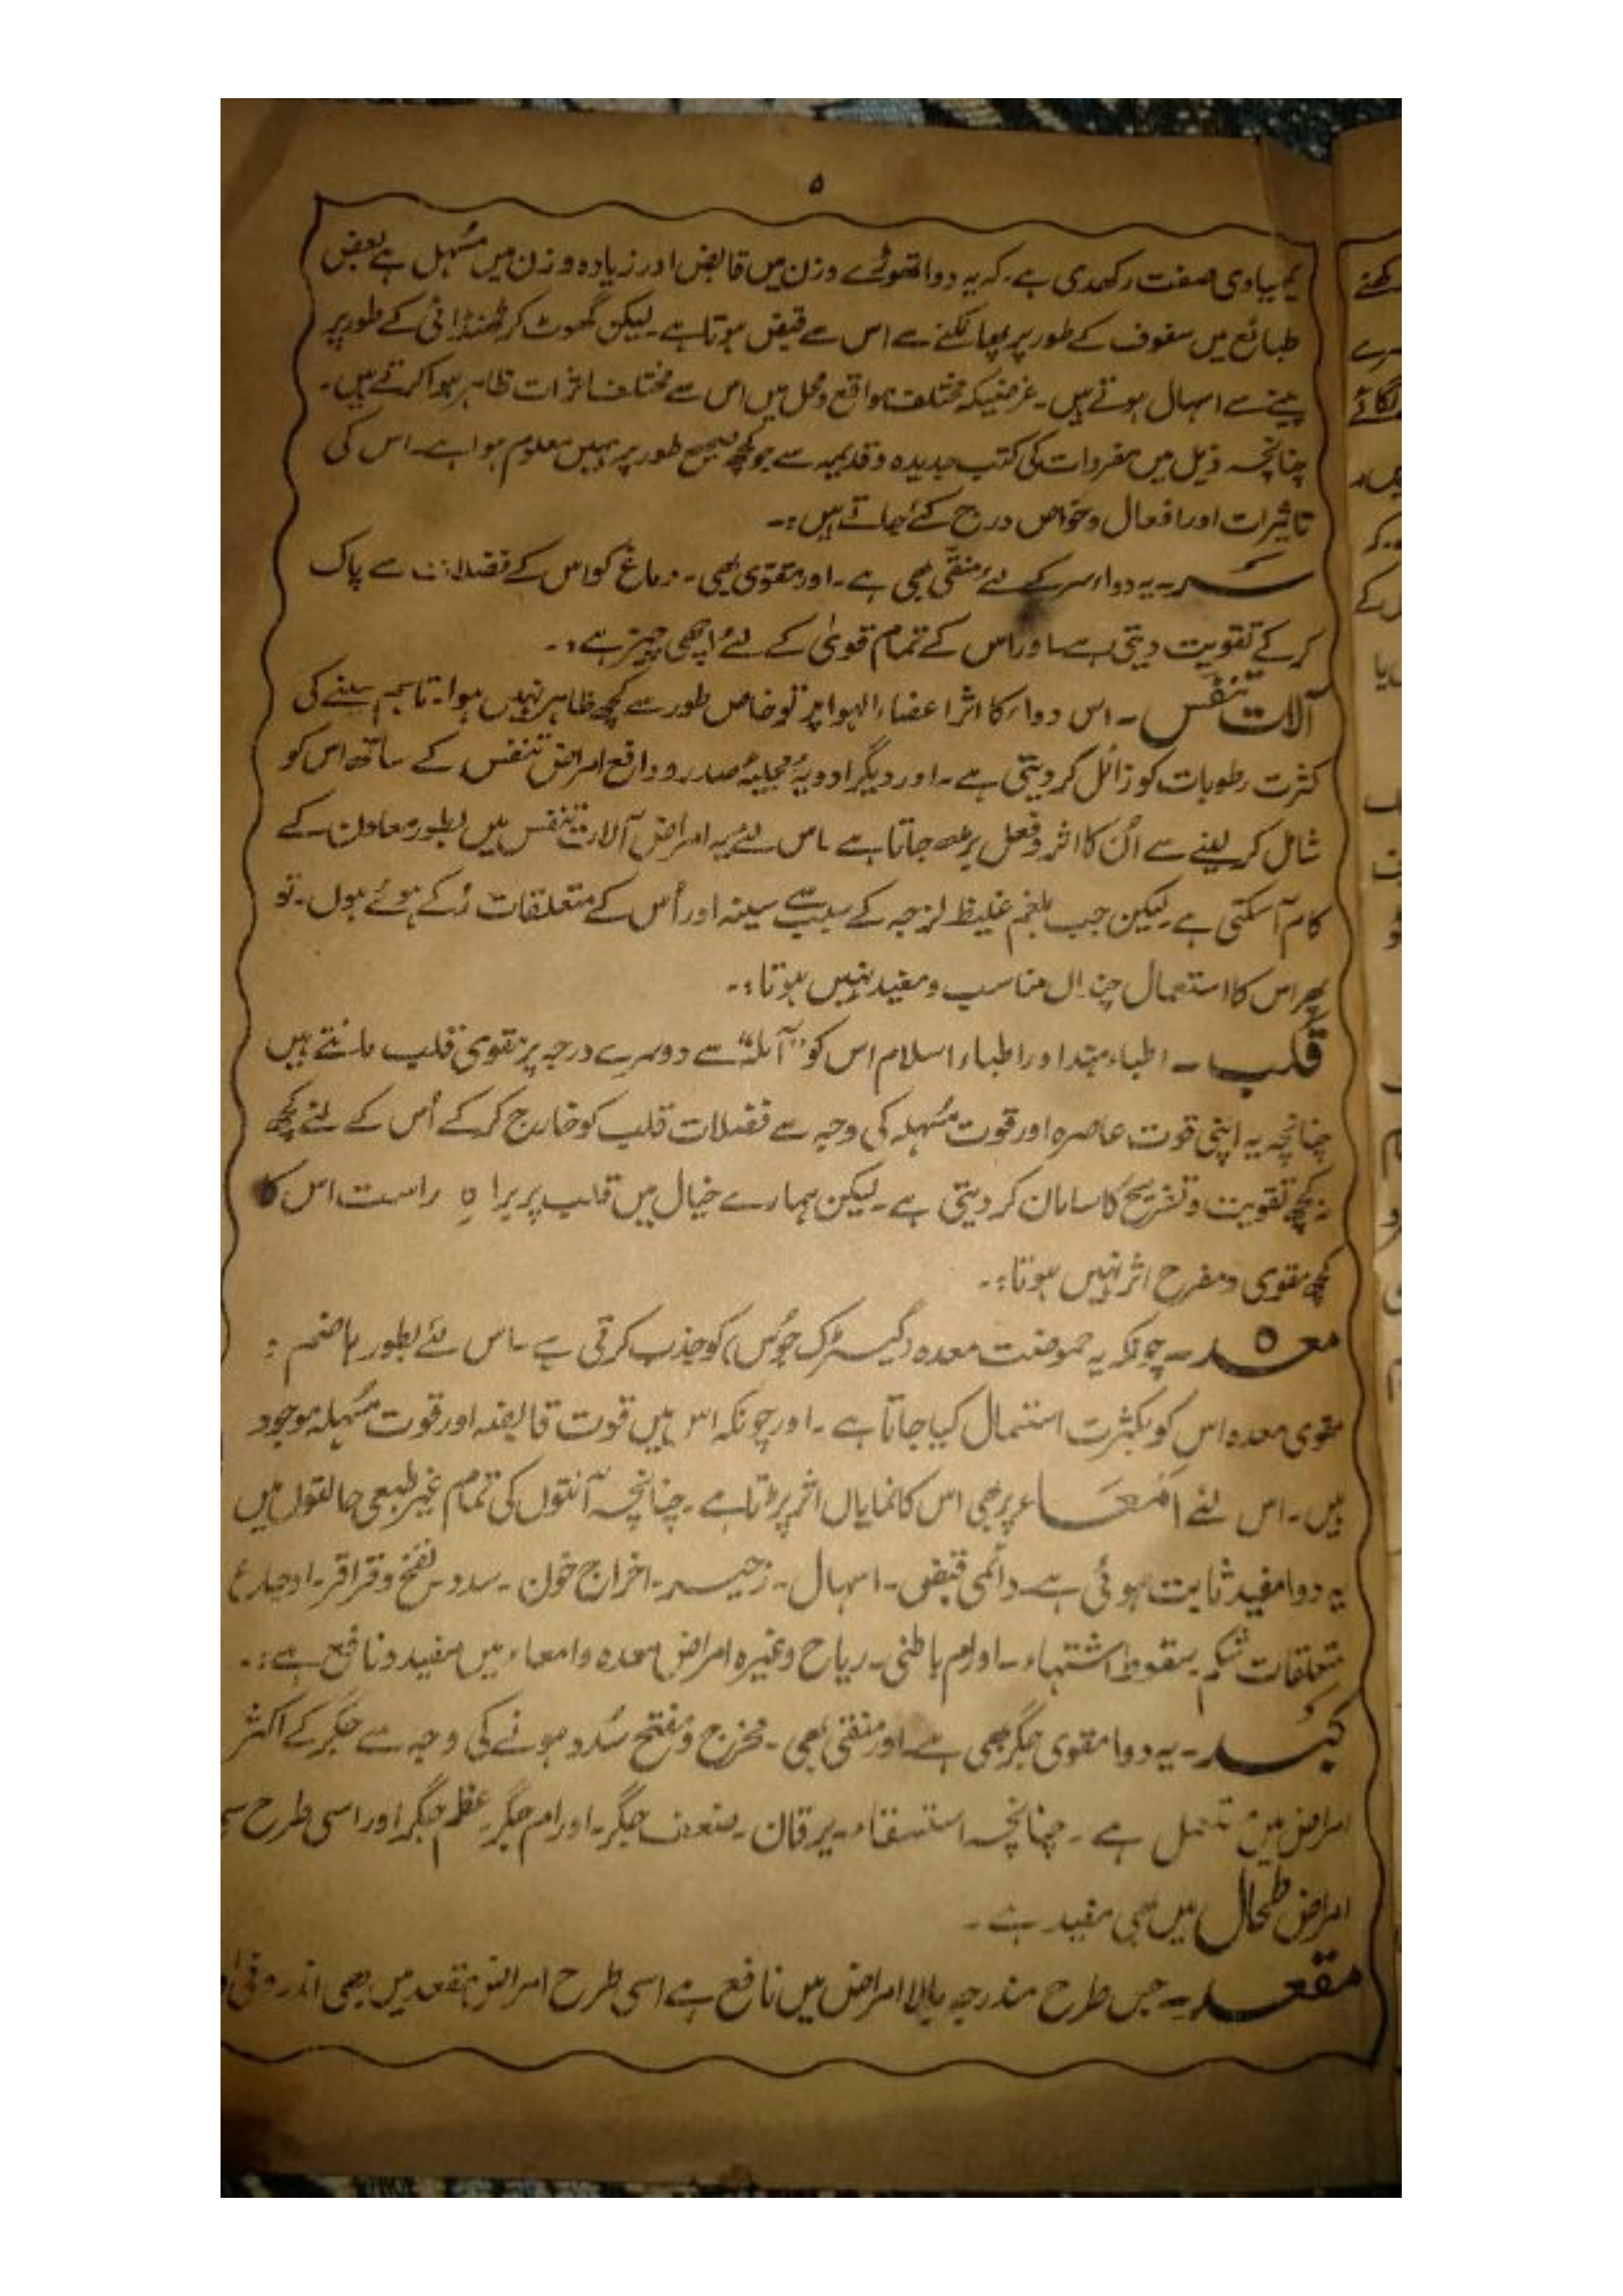 ۵
کیمیاوی صفت رکھدی ہے۔ کہ یہ دوا تھوڑے وزن میں قابض اور زیادہ وزن میں مُسہل ہے بعض
طبائع میں سفوف کے طور پر پھانکنے سے اس سے قبض ہوتا ہے۔ لیکن گھوٹ کر ٹھنڈائی کے طور پر
پینے سے اسہال ہوتے ہیں۔ غرضیکہ مختلف مواقع و محل میں اس سے مختلف اثرات ظاہر ہوا کرتے ہیں۔
چنانچہ ذیل میں مفردات کی کتب جدیدہ و قدیمہ سے جو کچھ صحیح طور پر ہمیں معلوم ہوا ہے۔ اس کی
تاثیرات اور افعال و خواص درج کئے جاتے ہیں:۔
سَر۔ یہ دواء سر کے لئے مُنقّی بھی ہے۔ اور مقوّی بھی۔ دماغ کو اس کے فضلات سے پاک
کر کے تقویت دیتی ہے۔ اور اس کے تمام قویٰ کے لئے اچھی چیز ہے:۔
آلات تنفّس۔ اس دواء کا اثر اعضاء الہوا پر تو خاص طور سے کچھ ظاہر نہیں ہوا۔ تاہم سینے کی
کثرت رطوبات کو زائل کر دیتی ہے۔ اور دیگر ادویۂ مجلیۂ صدر و دافع امراض تنفس کے ساتھ اس کو
شامل کر لینے سے اُن کا اثر و فعل بڑھ جاتا ہے۔ اس لئے یہ امراض آلات تنفس میں بطور معاون کے
کام آ سکتی ہے۔ لیکن جب بلغم غلیظ لزجہ کے سبب سے سینہ اور اُس کے متعلقات رُکے ہوئے ہوں۔ تو
پھر اس کا استعمال چنداں مناسب و مفید نہیں ہوتا:۔
قلب۔ اطباء ہند اور اطباء اسلام اس کو "آملہ" سے دوسرے درجہ پر مقوی قلب مانتے ہیں
چنانچہ یہ اپنی قوت عاصرہ اور قوت مُسہلہ کی وجہ سے فضلات قلب کو خارج کر کے اُس کے لئے کچھ
نہ کچھ تقویت و تفریح کا سامان کر دیتی ہے۔ لیکن ہمارے خیال میں قلب پر براہِ راست اس کا
کچھ مقوی و مفرح اثر نہیں ہوتا:۔
معدہ۔ چونکہ یہ حموضت معدہ (گیسٹرک جُوس) کو جذب کرتی ہے۔ اس لئے بطور ہاضم و
مقوی معدہ اس کو بکثرت استعمال کیا جاتا ہے۔ اور چونکہ اس میں قوت قابضہ اور قوت مُسہلہ موجود
ہیں۔ اس لئے اَمْعَاء پر بھی اس کا نمایاں اثر پڑتا ہے۔ چنانچہ آنتوں کی تمام غیر طبعی حالتوں میں
یہ دوا مفید ثابت ہوئی ہے۔ دائمی قبض۔ اسہال۔ زحیر۔ اخراج خون۔ سدوس نفخ و قراقر۔ اوجاع
متعلقات شکم۔ سقوط اشتہاء۔ اورام باطنی۔ ریاح وغیرہ امراض معدہ و امعاء میں مفید و نافع ہے:۔
کَبُد۔ یہ دوا مقوی جگر بھی ہے۔ اور منقی بھی۔ مخرج و مفتح سُدد ہونے کی وجہ سے جگر کے اکثر
امراض میں ہے۔ چنانچہ استسقاء۔ یرقان۔ ضعف جگر۔ اورام جگر۔ عظم جگر اور اسی طرح
امراض طحال میں بھی مفید ہے۔
مقعد۔ جس طرح مندرجہ بالا امراض میں نافع ہے اسی طرح امراض مقعد میں بھی اندرونی